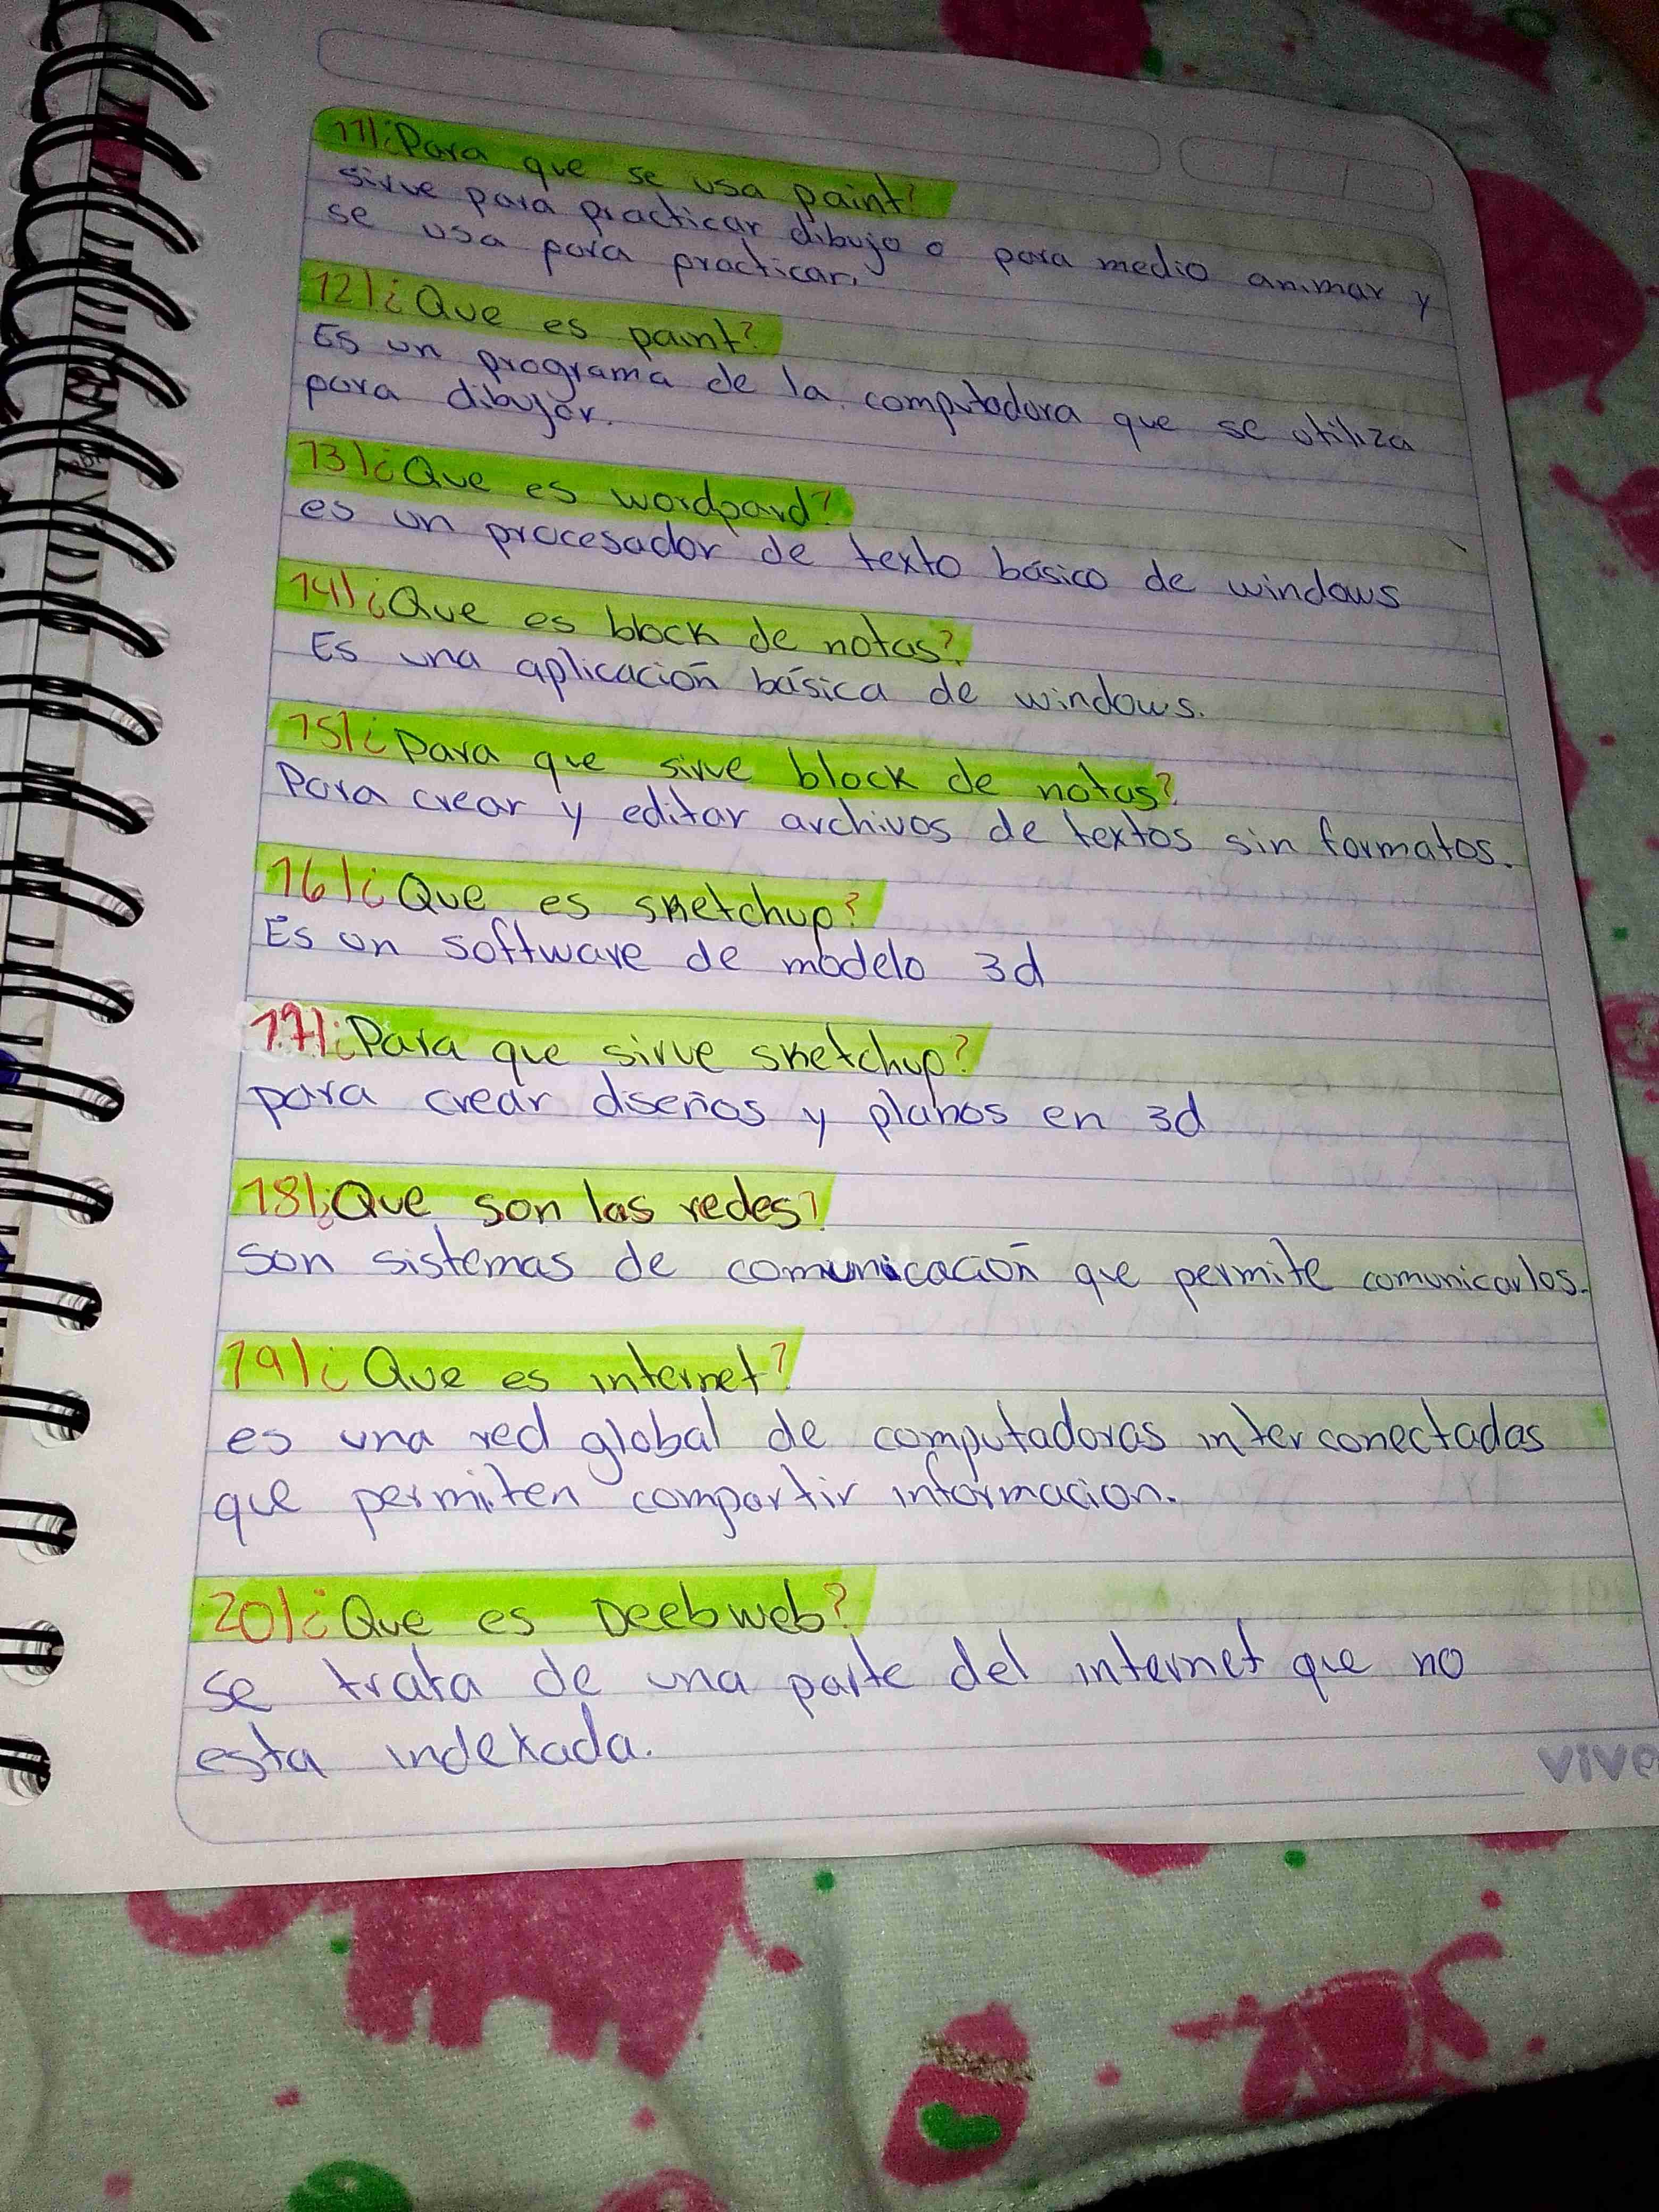 11)¿Para que se usa paint?
sirve para practicar dibujo o para medio animar y
se usa para practicar.
12)¿Que es paint?
Es un programa de la computadora que se utiliza
para dibujar.
13)¿Que es wordpard?
es un procesador de texto básico de windows
14)¿Que es block de notas?
Es una aplicación básica de windows.
15)¿Para que sirve block de notas?
Para crear y editar archivos de textos sin formatos.
16)¿Que es sketchup?
Es un software de modelo 3d
17)¿Para que sirve sketchup?
para crear diseños y planos en 3d
18)¿Que son las redes?
son sistemas de comunicación que permite comunicarlos.
19)¿Que es internet?
es una red global de computadoras interconectadas
que permiten compartir informacion.
20)¿Que es Deebweb?
se trata de una parte del internet que no
esta indexada.
vive